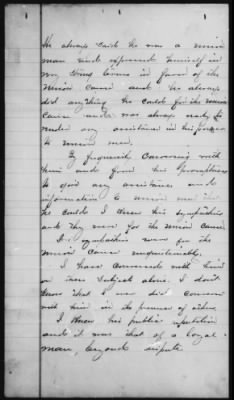 He always said he was a union
man and expressed himself in
my company in favor of the
Union cause and he always
did anything he could for the union
cause and was always ready to
render any assistance in his power
to union men.
By frequently conversing with
him and from his promptness
to give any assistance and
information to union men that
he could I knew his sympathies
and they were for the Union cause.
His sympathies were for the
Union cause unquestionably.
I have conversed with him
on this subject alone. I don't
know that I ever did converse
with him in the presence of others.
I knew his public reputation
and it was that of a loyal
man, beyond dispute